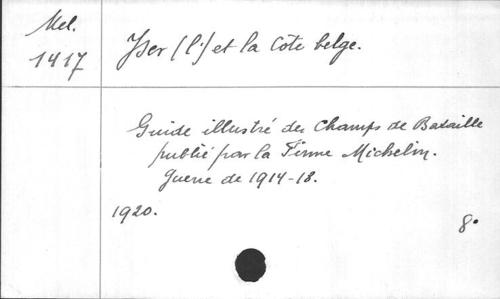 Mel.
1417
Yser (l') et la Cote belge.
Guide illustré des Champs de Bataille
publié par la Firme Michelin.
Guerre de 1914-18.
1920.
8°